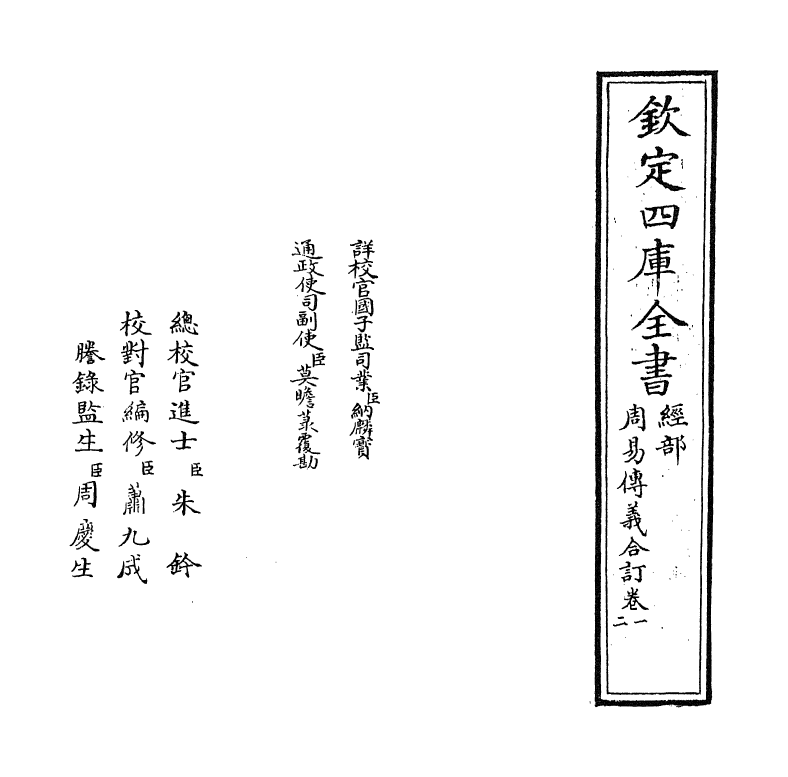 欽定四庫全書
經部
周易傳義合訂卷一
二
詳校官國子監司業臣納麟寶
通政使司副使臣莫瞻菉覆勘
總校官進士臣朱鈐
校對官編修臣蕭九成
謄錄監生臣周慶生